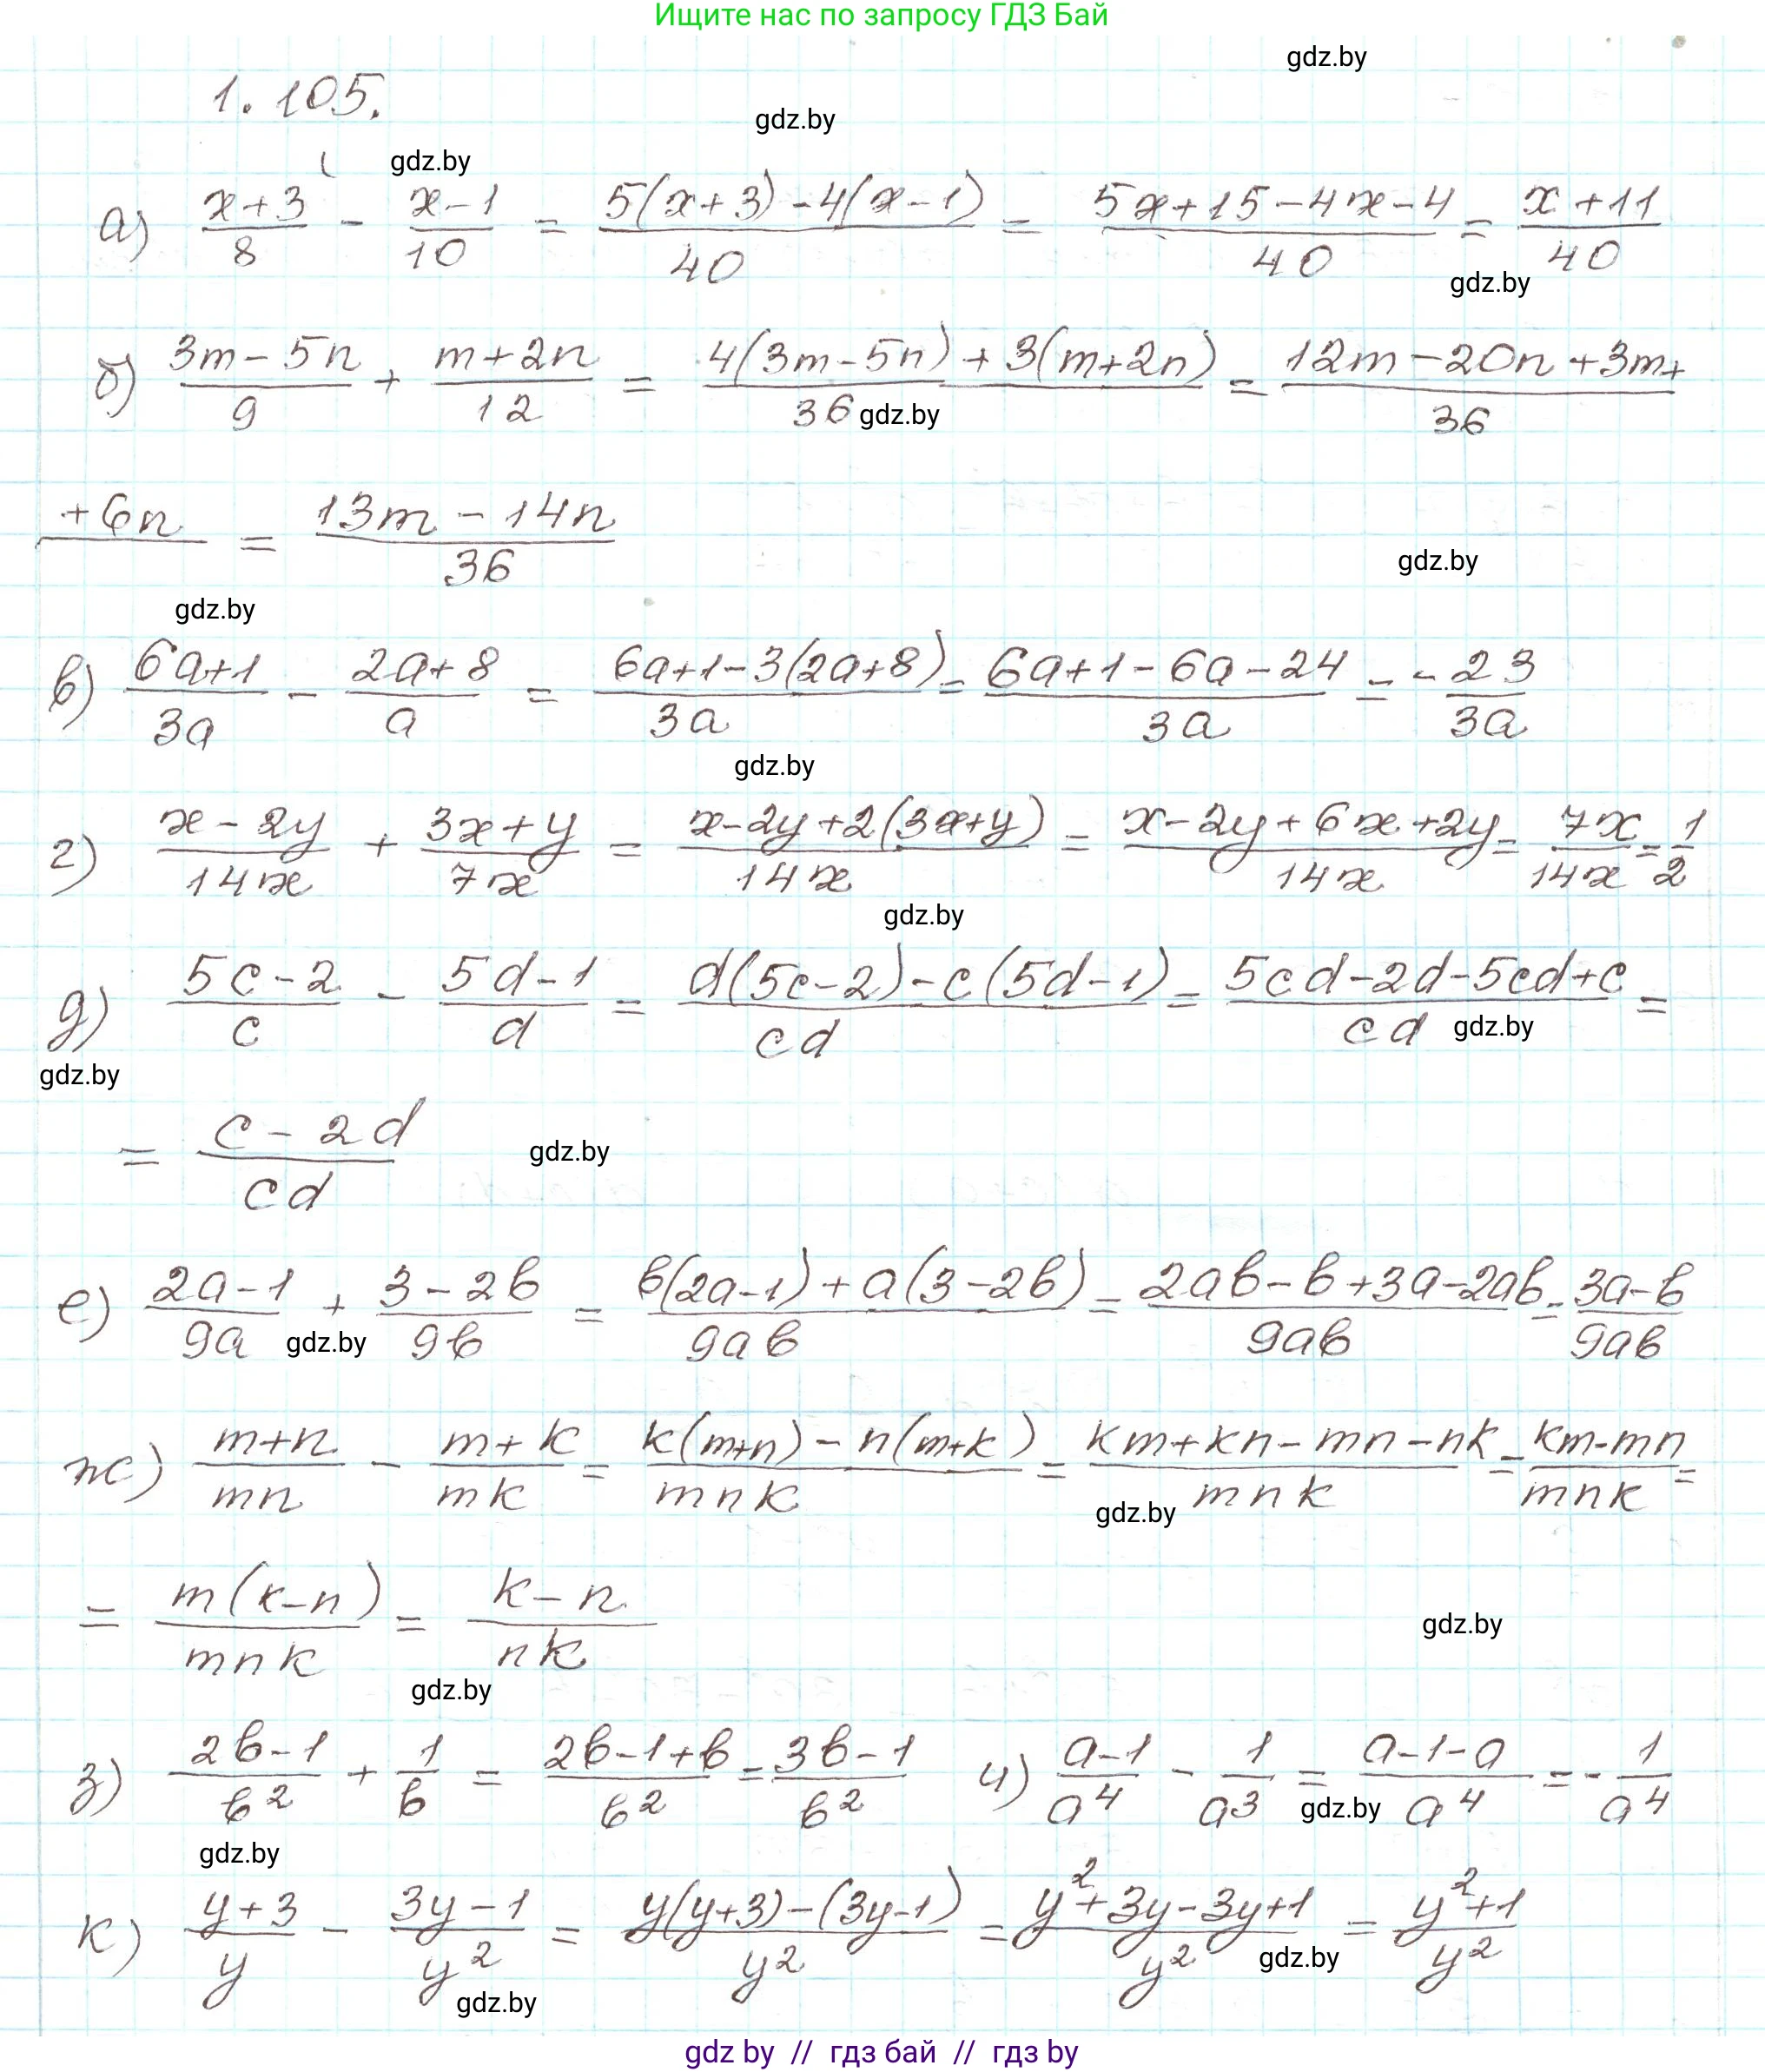 Ищите нас по запросу ГДЗ Бай
gdz.by
1.105.
gdz.by
gdz.by
а) (x+3)/8 - (x-1)/10 = (5(x+3)-4(x-1))/40 = (5x+15-4x-4)/40 = (x+11)/40
gdz.by
б) (3m-5n)/9 + (m+2n)/12 = (4(3m-5n)+3(m+2n))/36 = (12m-20n+3m+)/36
gdz.by
+6n = (13m-14n)/36
gdz.by
gdz.by
в) (6a+1)/3a - (2a+8)/a = (6a+1-3(2a+8))/3a = (6a+1-6a-24)/3a = -23/3a
gdz.by
г) (x-2y)/14x + (3x+y)/7x = (x-2y+2(3x+y))/14x = (x-2y+6x+2y)/14x = 7x/14x = 1/2
gdz.by
д) (5c-2)/c - (5d-1)/d = (d(5c-2)-c(5d-1))/cd = (5cd-2d-5cd+c)/cd =
gdz.by
gdz.by
= (c-2d)/cd
gdz.by
е) (2a-1)/9a + (3-2b)/9b = (b(2a-1)+a(3-2b))/9ab = (2ab-b+3a-2ab)/9ab = (3a-b)/9ab
gdz.by
ж) (m+n)/mn - (m+k)/mk = (k(m+n)-n(m+k))/mnk = (km+kn-mn-nk)/mnk = (km-mn)/mnk =
gdz.by
= m(k-n)/mnk = (k-n)/nk
gdz.by
gdz.by
з) (2b-1)/b² + 1/b = (2b-1+b)/b² = (3b-1)/b² и) (a-1)/a⁴ - 1/a³ = (a-1-a)/a⁴ = -1/a⁴
gdz.by
gdz.by
к) (y+3)/y - (3y-1)/y² = (y(y+3)-(3y-1))/y² = (y²+3y-3y+1)/y² = (y²+1)/y²
gdz.by
gdz.by
gdz by // гдз бай // гдз by